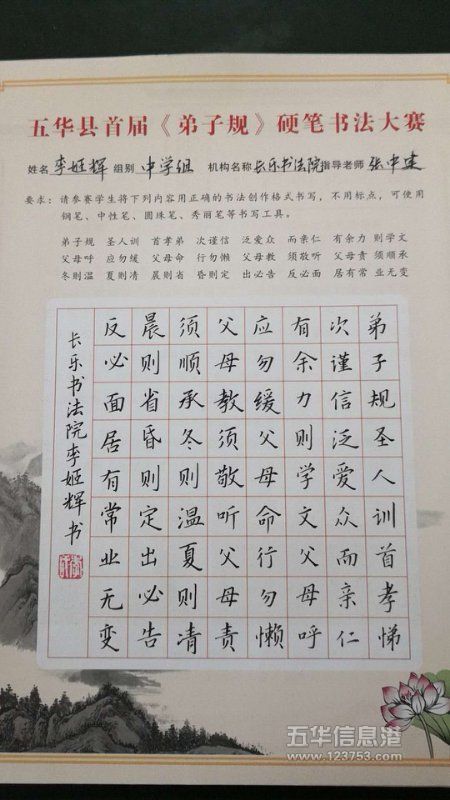 五华县首届《弟子规》硬笔书法大赛
姓名 李姬辉 组别 中学组 机构名称 长乐书法院 指导老师 张中建
要求：请参赛学生将下列内容用正确的书法创作格式书写，不用标点，可使用
钢笔、中性笔、圆珠笔、秀丽笔等书写工具。
弟子规 圣人训 首孝弟 次谨信 泛爱众 而亲仁 有余力 则学文
父母呼 应勿缓 父母命 行勿懒 父母教 须敬听 父母责 须顺承
冬则温 夏则清 晨则省 昏则定 出必告 反必面 居有常 业无变
弟子规圣人训首孝悌
次谨信泛爱众而亲仁
有余力则学文父母呼
应勿缓父母命行勿懒
父母教须敬听父母责
须顺承冬则温夏则清
晨则省昏则定出必告
反必面居有常业无变
长乐书法院李姬辉书
五华信息港
www.123753.com